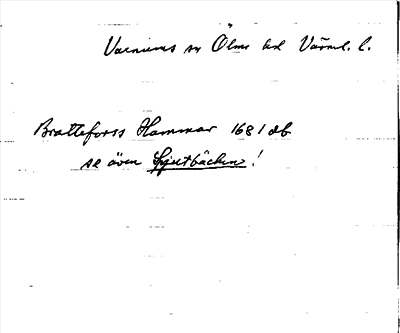 Varnums sn Ölme hd Värml. l.
Brattefors Hammar 1681 db
se även Spjutbäcken!